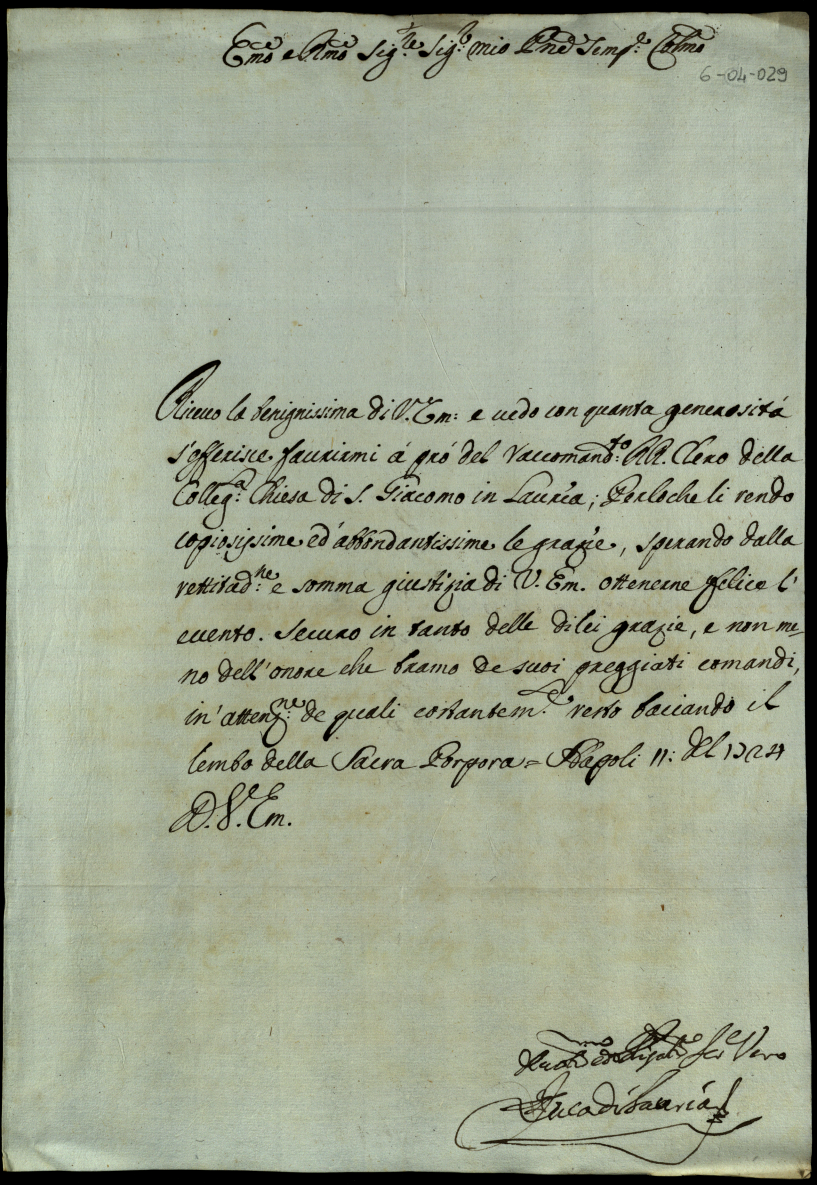 Em̅o e Rm̅o Sig.re Sig.r mio Pn̅e Semp.e Colm̅o
6-04-029
Riceuo la benignissima di V. Em: e uedo con quanta generosità
s'offerisce fauurirmi à prò del raccomand.to RR. Clero della
Colleg.a Chiesa di S. Giacomo in Lauria; Perloche li rendo
copiosissime ed' abbondantissime le grazie, sperando dalla
rettitud.ne e somma giustizia di V. Em. ottenerne felice l'
euento. Securo in tanto delle di lei grazie, e non me,
no dell'onore che bramo de suoi preggiati comandi,
in' attenz.ne de quali costantem.te resto baciando il
lembo della Sacra Porpora = Napoli 11: del 1724
D. V. Em.
Ser.e Vero
Duca di Lauria